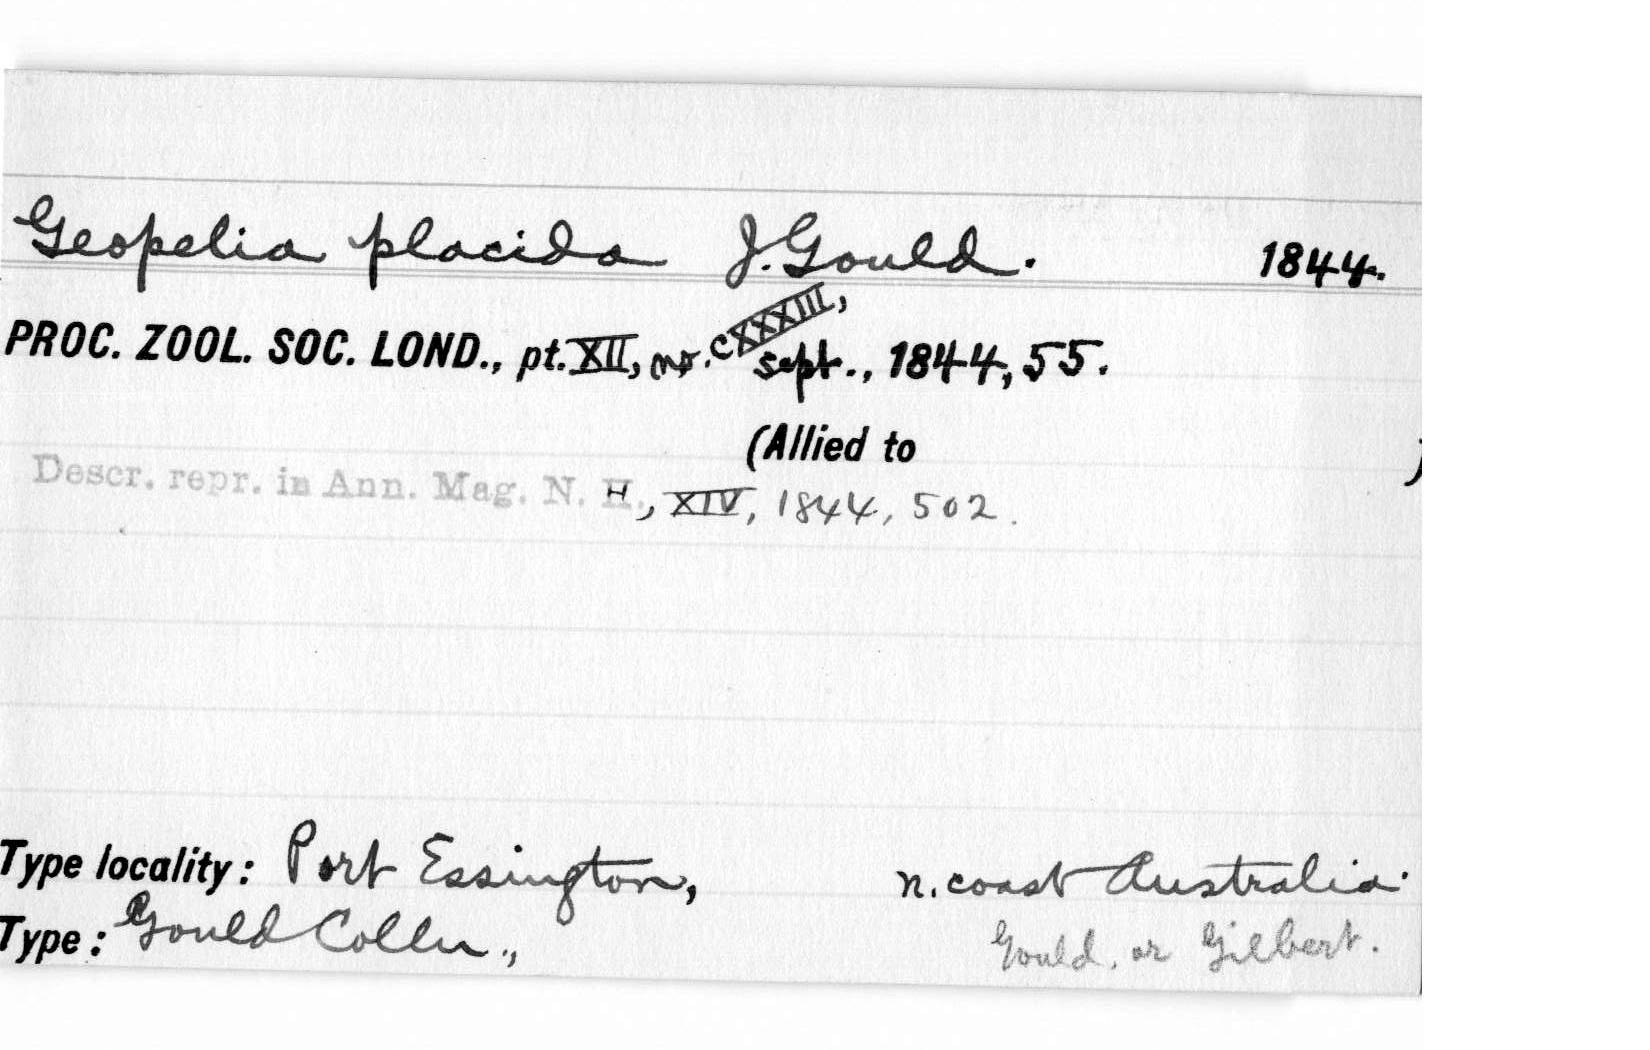 Geopelia placida J. Gould. 1844.
PROC. ZOOL. SOC. LOND., pt. XII, no. CXXXIII, Sept., 1844, 55.
(Allied to )
Descr. repr. in Ann. Mag. N. H., XIV, 1844, 502.
Type locality: Port Essington, n. coast Australia.
Type: Gould Colln., Gould, or Gilbert.